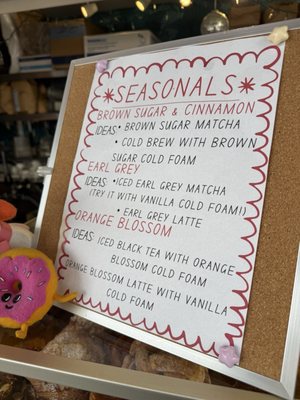 * SEASONALS *
BROWN SUGAR & CINNAMON
IDEAS: • BROWN SUGAR MATCHA
• COLD BREW WITH BROWN
SUGAR COLD FOAM
EARL GREY
IDEAS: • ICED EARL GREY MATCHA
(TRY IT WITH VANILLA COLD FOAM!)
• EARL GREY LATTE
ORANGE BLOSSOM
IDEAS: ICED BLACK TEA WITH ORANGE
BLOSSOM COLD FOAM
ORANGE BLOSSOM LATTE WITH VANILLA
COLD FOAM